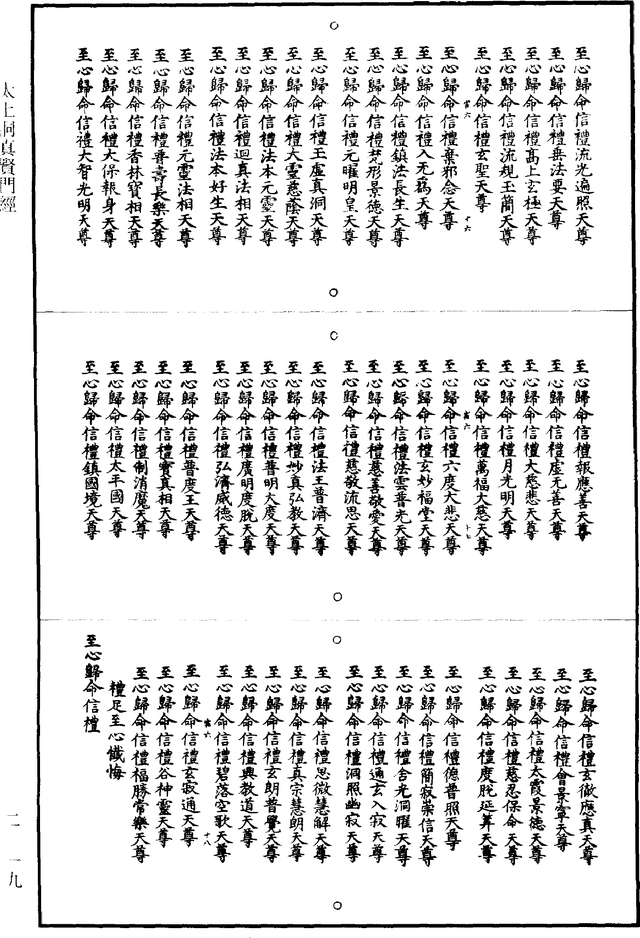 至心歸命信禮流光遍照天尊
至心歸命信禮垂法要天尊
至心歸命信禮高上玄極天尊
至心歸命信禮流規玉簡天尊
至心歸命信禮玄聖天尊
至心歸命信禮棄邪念天尊
至心歸命信禮入无為天尊
至心歸命信禮鎮法長生天尊
至心歸命信禮梵形景德天尊
至心歸命信禮元曜明皇天尊
至心歸命信禮王虛真洞天尊
至心歸命信禮大靈慈蔭天尊
至心歸命信禮法本元靈天尊
至心歸命信禮迴真法相天尊
至心歸命信禮法本好生天尊
至心歸命信禮元靈法相天尊
至心歸命信禮普壽長樂天尊
至心歸命信禮香林寶相天尊
至心歸命信禮大保報身天尊
至心歸命信禮大智光明天尊
至心歸命信禮報應善天尊
至心歸命信禮虛无善天尊
至心歸命信禮大慈悲天尊
至心歸命信禮月光明天尊
至心歸命信禮萬福大慈天尊
至心歸命信禮六度大悲天尊
至心歸命信禮玄妙福堂天尊
至心歸命信禮法雲普光天尊
至心歸命信禮慈善敬愛天尊
至心歸命信禮慈敬流思天尊
至心歸命信禮法王普濟天尊
至心歸命信禮妙真弘教天尊
至心歸命信禮普明大度天尊
至心歸命信禮廣明度脫天尊
至心歸命信禮弘濟威德天尊
至心歸命信禮普度王天尊
至心歸命信禮寶真相天尊
至心歸命信禮制消魔天尊
至心歸命信禮太平國天尊
至心歸命信禮鎮國境天尊
至心歸命信禮玄徹應真天尊
至心歸命信禮會景寧天尊
至心歸命信禮太霞景德天尊
至心歸命信禮慈忍保命天尊
至心歸命信禮度脫延筭天尊
至心歸命信禮德普照天尊
至心歸命信禮簡寂崇信天尊
至心歸命信禮含光洞曜天尊
至心歸命信禮通玄入寂天尊
至心歸命信禮洞照幽寂天尊
至心歸命信禮思微慧解天尊
至心歸命信禮真宗慧朗天尊
至心歸命信禮玄朗普覺天尊
至心歸命信禮興教道天尊
至心歸命信禮碧落空歌天尊
至心歸命信禮玄寂通天尊
至心歸命信禮谷神靈天尊
至心歸命信禮福勝常樂天尊
禮足至心懺悔
至心歸命信禮
太上洞真賢門經
二一九